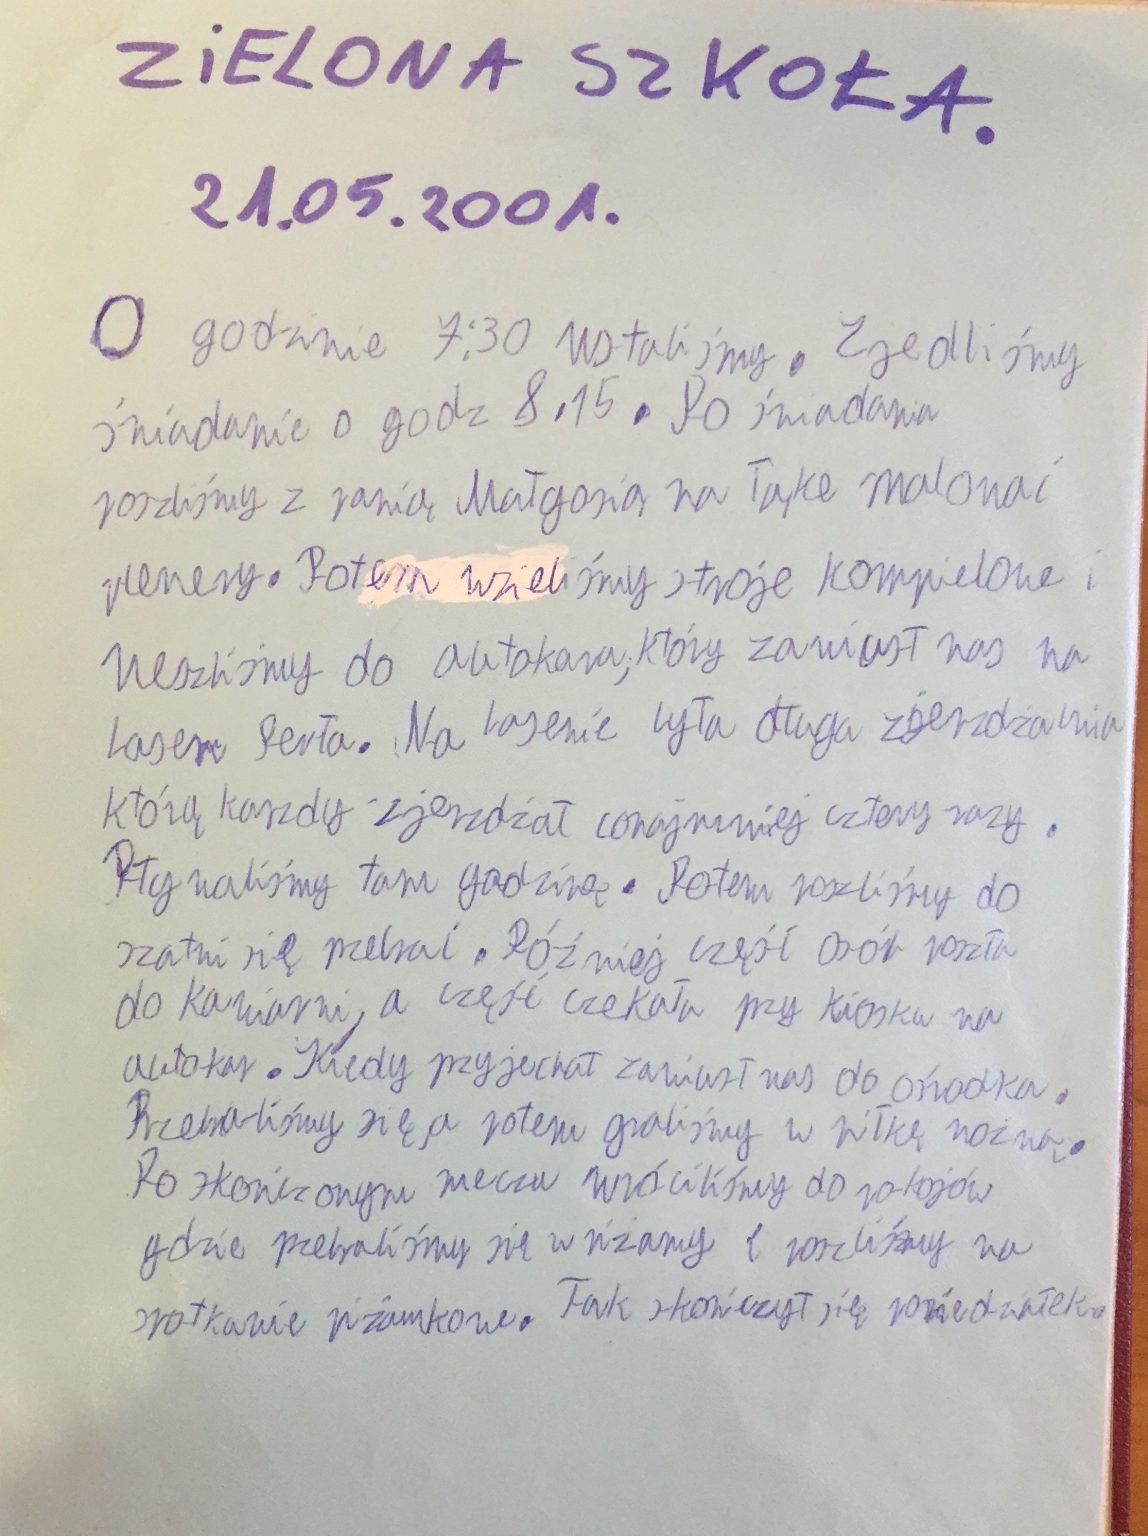 ZiELONA SZKOŁA.
21.05.2001.
O godzinie 7:30 Wstaliśmy. Zjedliśmy
śniadanie o godz 8.15. Po śniadania
poszliśmy z panią Małgosią na łąke malować
plenery. Potem wzieliśmy stroje kompielowe i
weszliśmy do autokara, który zawiusł nas na
basem Perła. Na basenie była długa zjerzdżalnia
którą karzdy zjerzdżał conajmniej cztery razy.
Pływaliśmy tam godzinę. Potem poszliśmy do
szatni się przebrać. Później część osób poszła
do kawiarni, a część czekała przy kiosku na
autokar. Kiedy przyjechał zawiusł nas do ośrodka.
Przebraliśmy się, a potem graliśmy w piłkę nożną.
Po skończonym meczu wróciliśmy do pokojów
gdzie przebraliśmy się w piżamy i poszliśmy na
spotkanie piżamkowe. Tak skończył się poniedziałek.